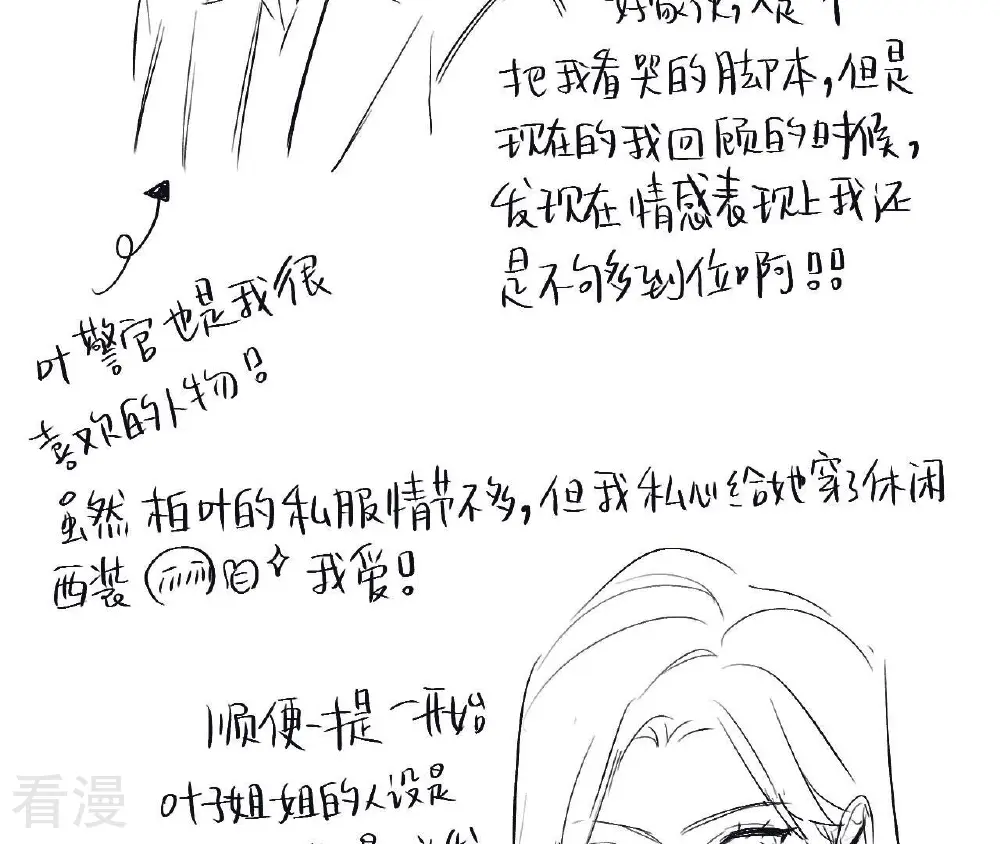 把我看哭的脚本,但是
现在的我回顾的时候,
发现在情感表现上我还
是不够到位啊!!
叶警官也是我很
喜欢的人物!
虽然柏叶的私服情节不多,但我私心给她穿了休闲
西装 我爱!
顺便一提一开始
叶子姐姐的人设是
看漫